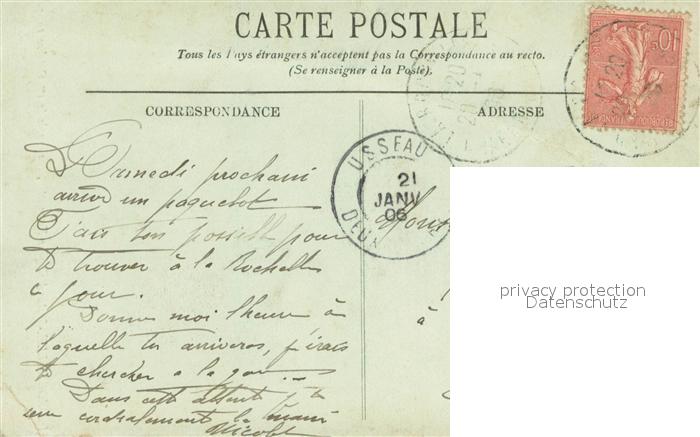 CARTE POSTALE
Tous les Pays étrangers n'acceptent pas la Correspondance au recto.
(Se renseigner à la Poste).
CORRESPONDANCE
ADRESSE
Samedi prochain
arrive un paquebot
Fais ton possible pour
te trouver à la Rochelle
ce jour.
Donne moi l'heure à
laquelle tu arriveras, j'irais
te chercher a la gare...
Dans cette attente je te
serre cordialement la main
Nicolet
à
USSEAU
21
JANV
06
DEUX
10c
privacy protection
Datenschutz